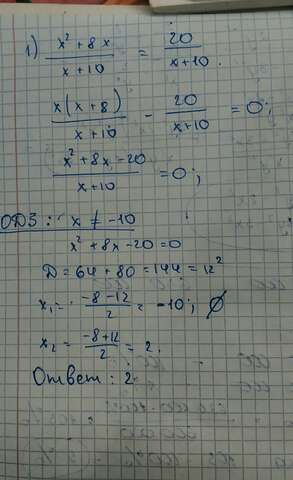 1) (x² + 8x)/(x + 10) = 20/(x + 10).
x(x + 8)/(x + 10) - 20/(x + 10) = 0;
(x² + 8x - 20)/(x + 10) = 0;
ОДЗ: x ≠ -10
x² + 8x - 20 = 0
D = 64 + 80 = 144 = 12²
x₁ = (-8 - 12)/2 = -10; ∅
x₂ = (-8 + 12)/2 = 2.
Ответ: 2.